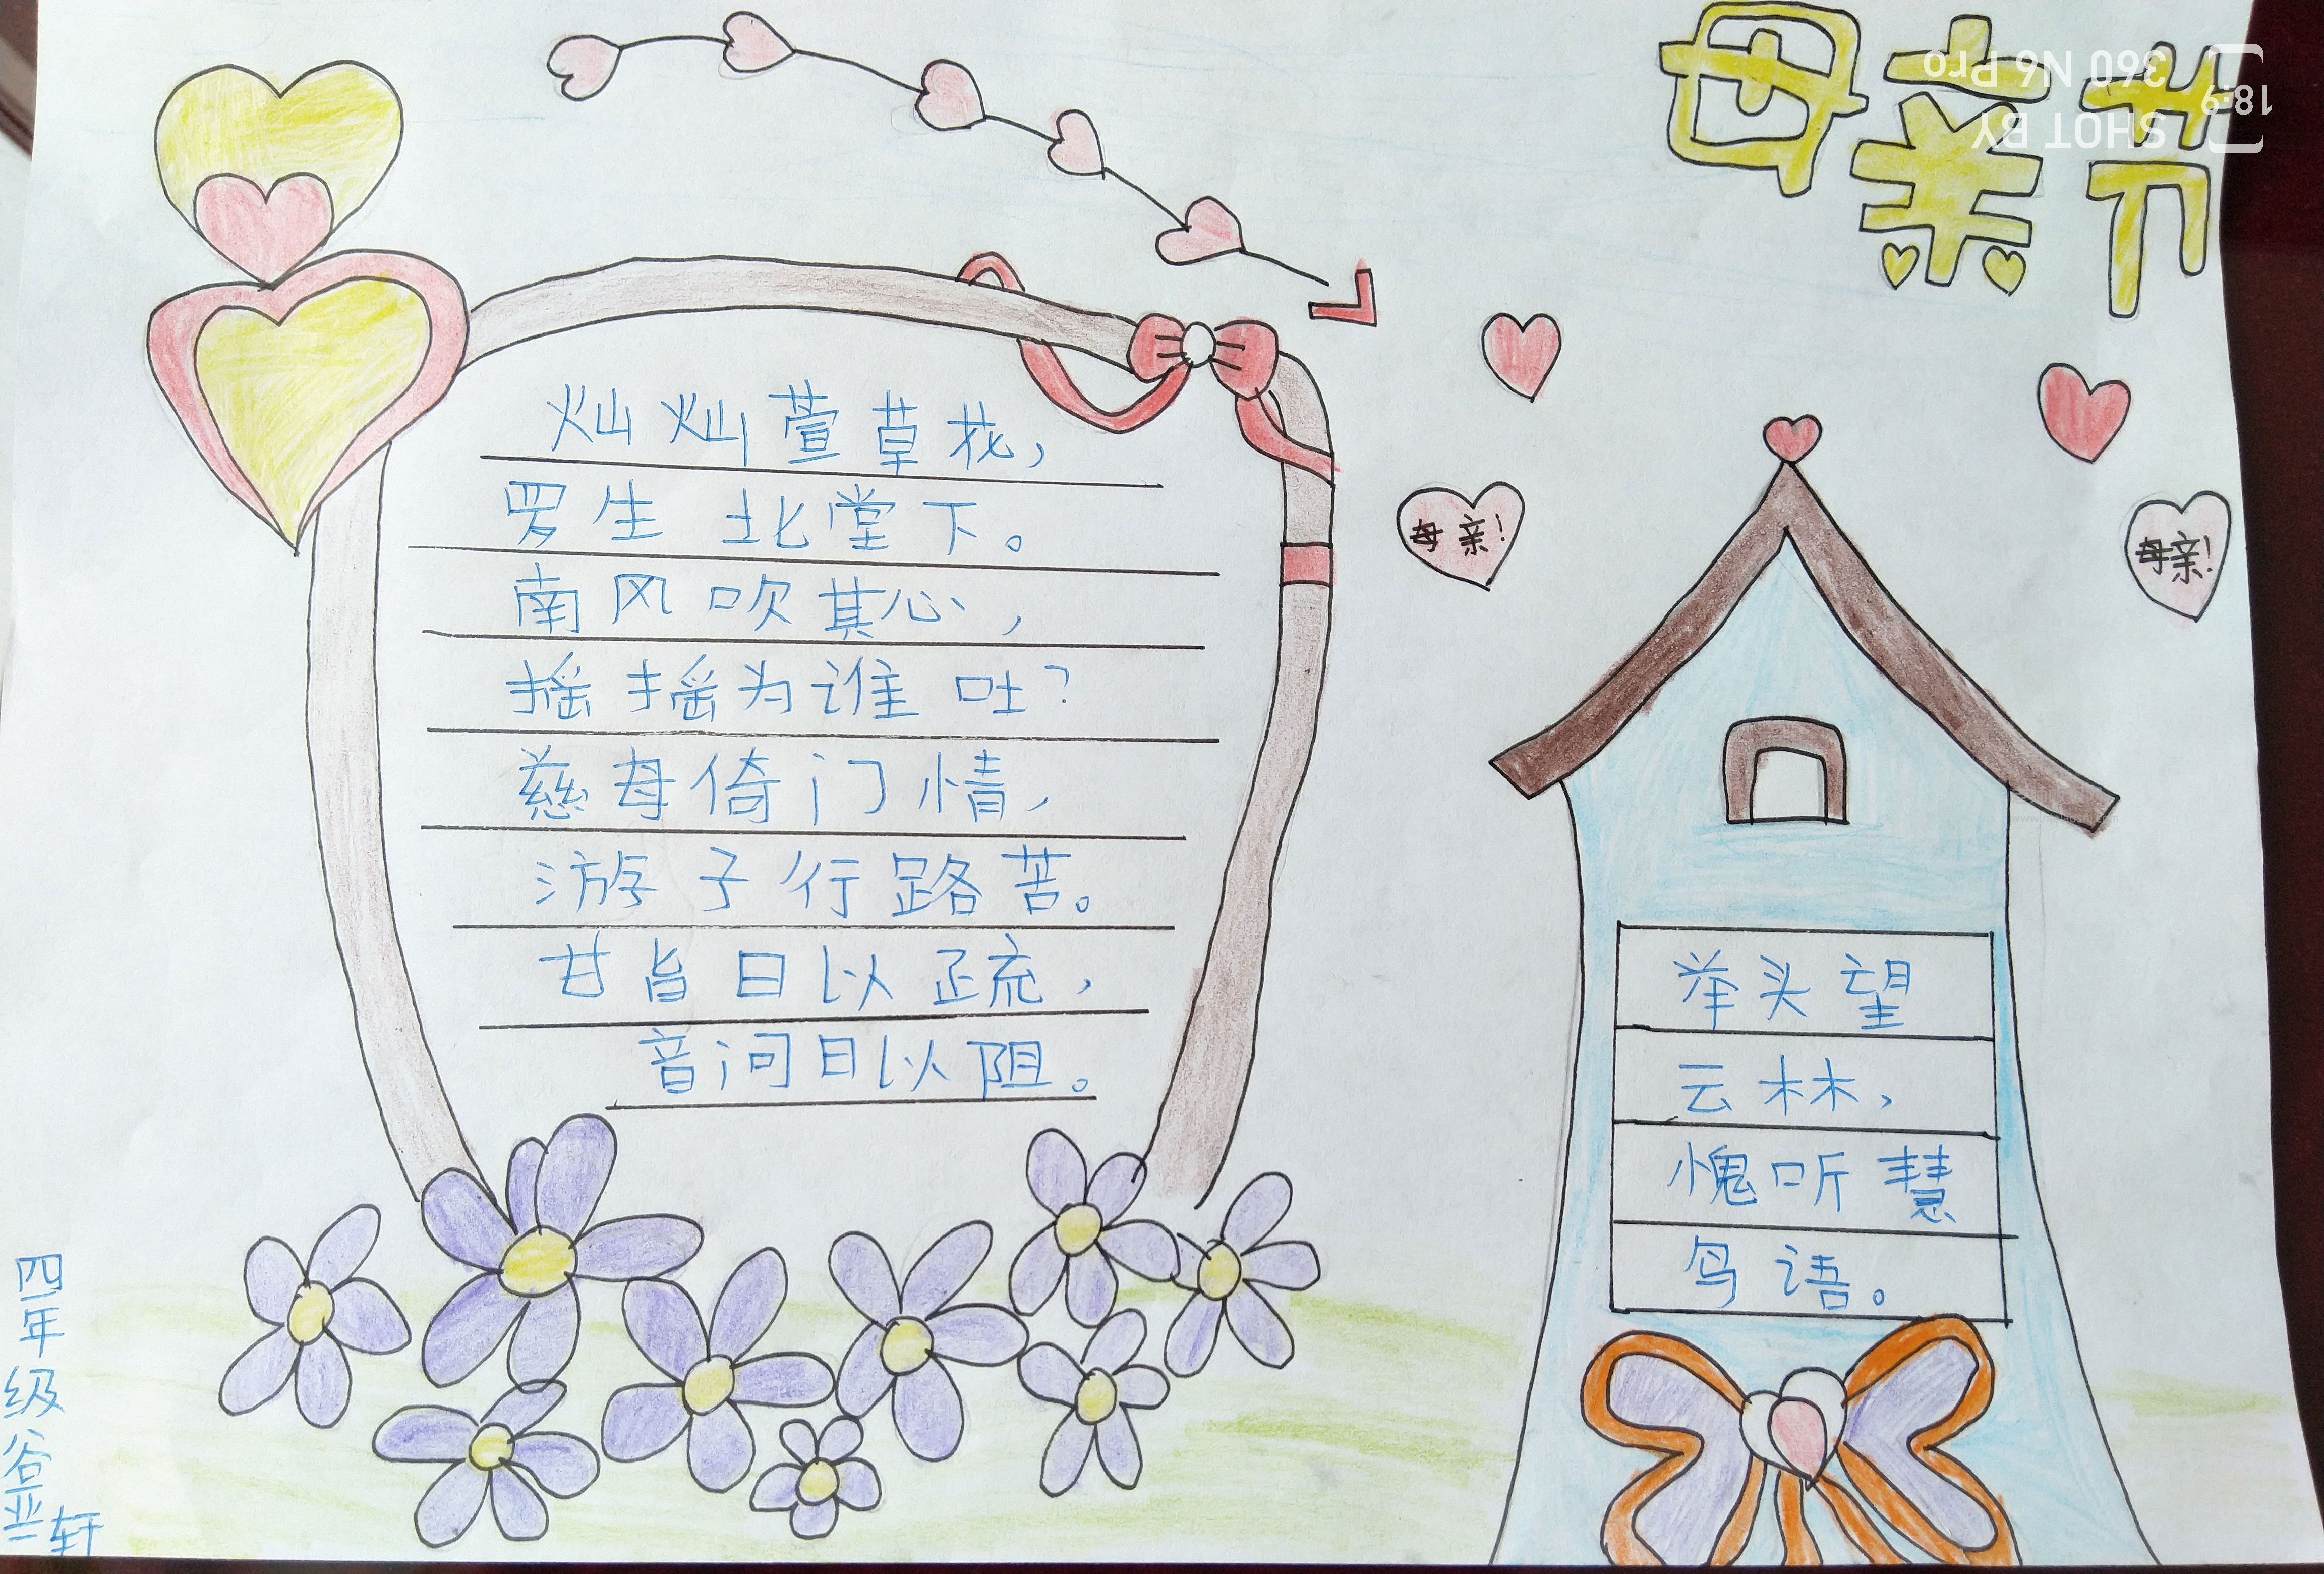 母亲节
灿灿萱草花，
罗生北堂下。
南风吹其心，
摇摇为谁吐？
慈母倚门情，
游子行路苦。
甘旨日以疏，
音问日以阻。
母亲！
母亲！
举头望
云林，
愧听慧
鸟语。
四年级谷亚轩
18:9
SHOT BY
360 N6 Pro